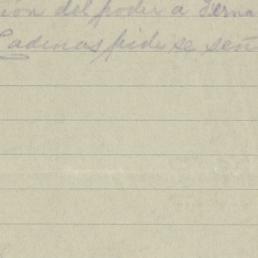 ion del poder a Ferna
Cadenas pide se señ